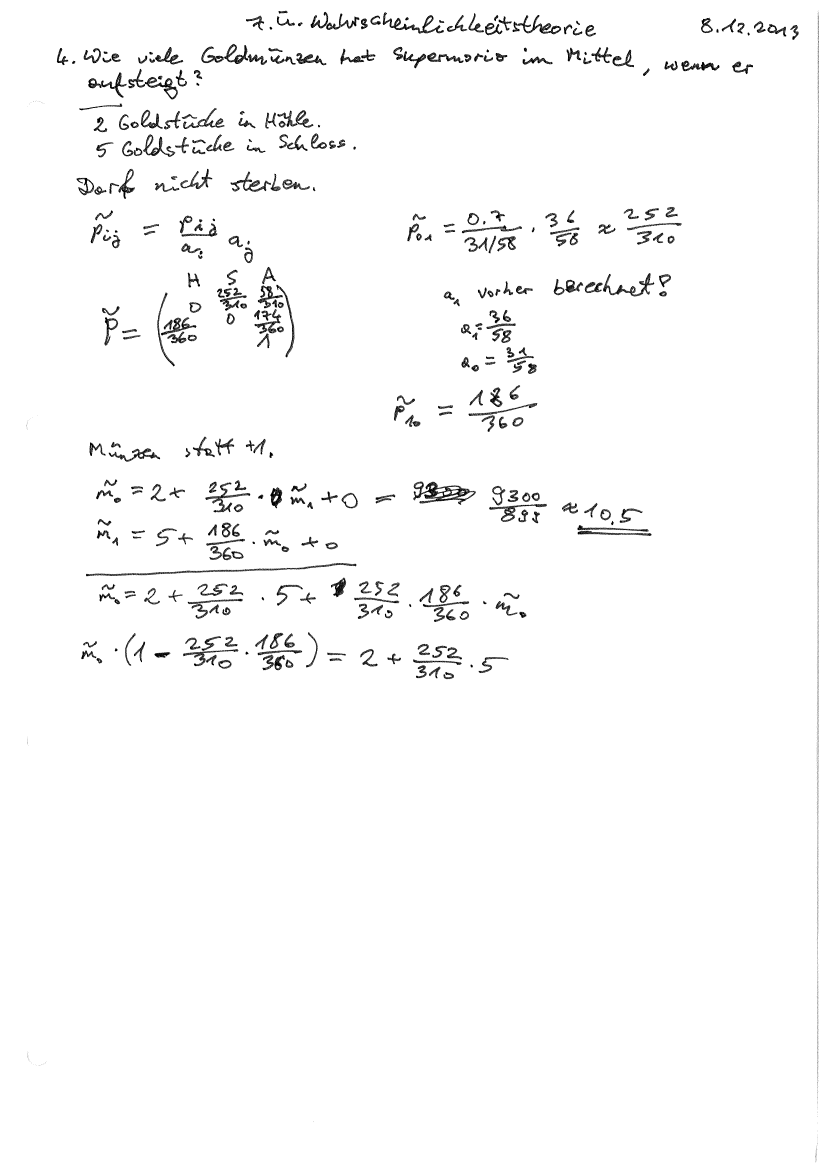 7. Ü. Wahrscheinlichkeitstheorie 8.12.2013
4. Wie viele Goldmünzen hat Supermario im Mittel, wenn er
aufsteigt?
2 Goldstücke in Höhle.
5 Goldstücke in Schloss.
Darf nicht sterben.
p̃ij = pij/ai aj
p̃01 = 0.7/(31/58) · 36/58 ≈ 252/310
H S A
P̃ = ( 0 252/310 58/310
186/360 0 174/360
1 )
a1 vorher berechnet?
a1 = 36/58
a0 = 31/58
p̃10 = 186/360
Münzen statt +1.
m̃0 = 2 + 252/310 · m̃1 + 0 = 9300/895 ≈ 10,5
m̃1 = 5 + 186/360 · m̃0 + 0
m̃0 = 2 + 252/310 · 5 + 252/310 · 186/360 · m̃0
m̃0 · (1 - 252/310 · 186/360) = 2 + 252/310 · 5